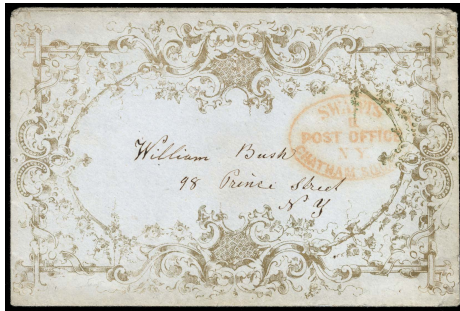 SWARTS
POST OFFICE
N Y
CHATHAM SQR
William Bush
98 Prince Street
N. Y